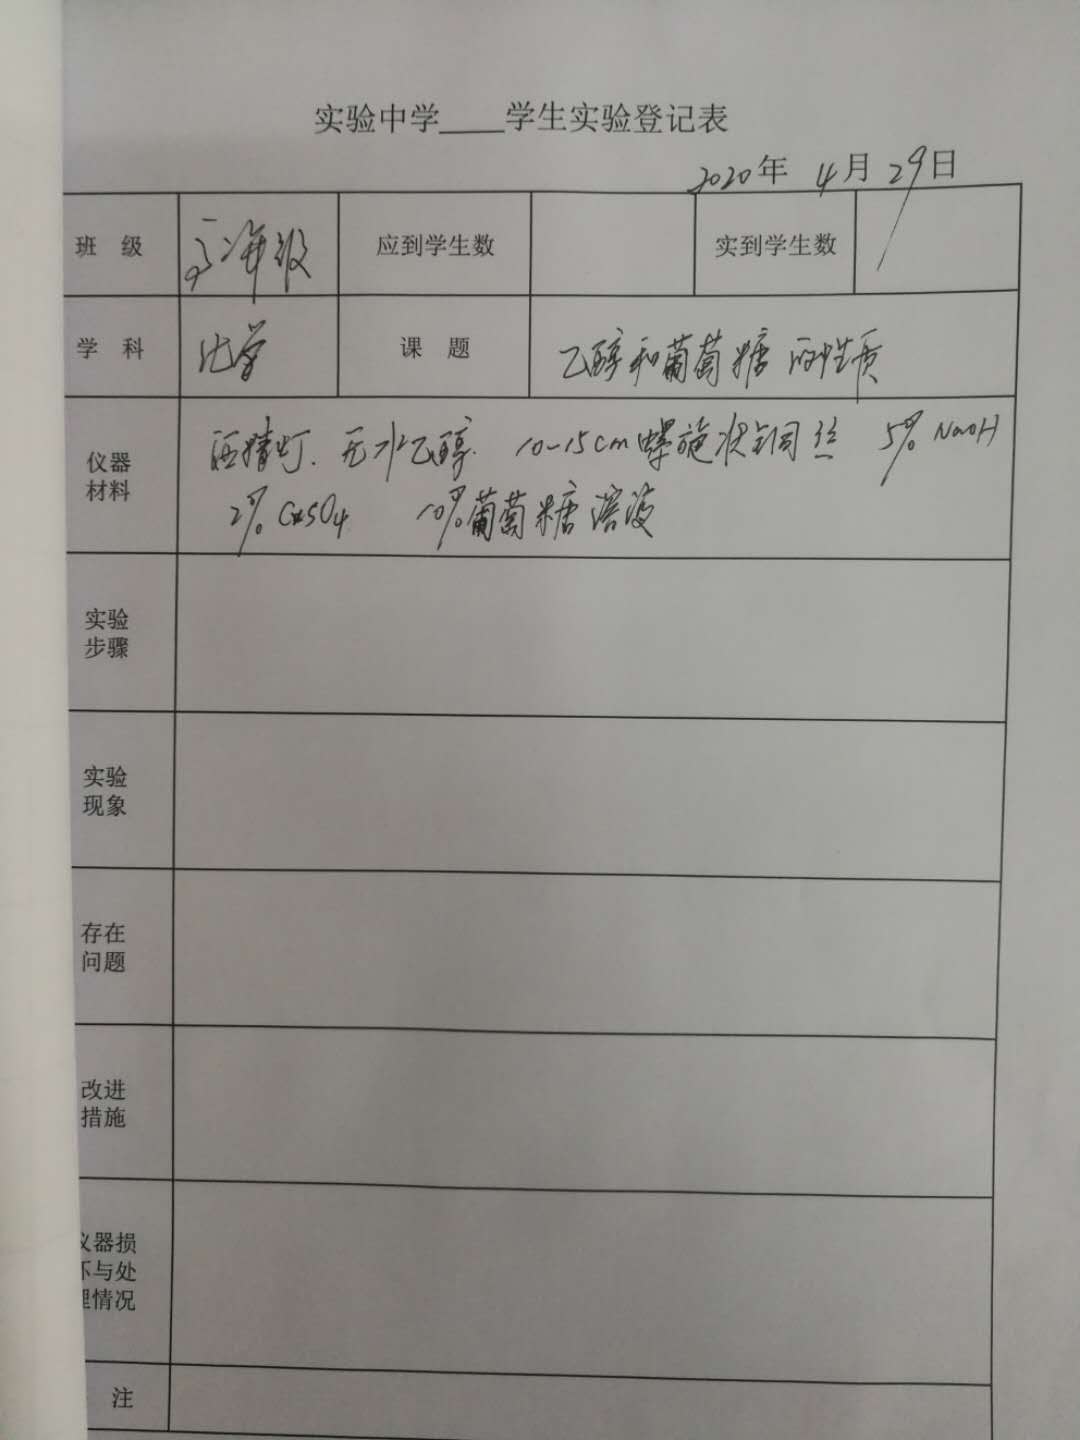 实验中学____学生实验登记表
2020年 4月29日
班 级 高二年级 应到学生数 实到学生数
学 科 化学 课 题 乙醇和葡萄糖的性质
仪器
材料
酒精灯、无水乙醇、10-15cm螺旋状铜丝 5% NaOH
2% CuSO4 10%葡萄糖溶液
实验
步骤
实验
现象
存在
问题
改进
措施
仪器损
坏与处
理情况
注